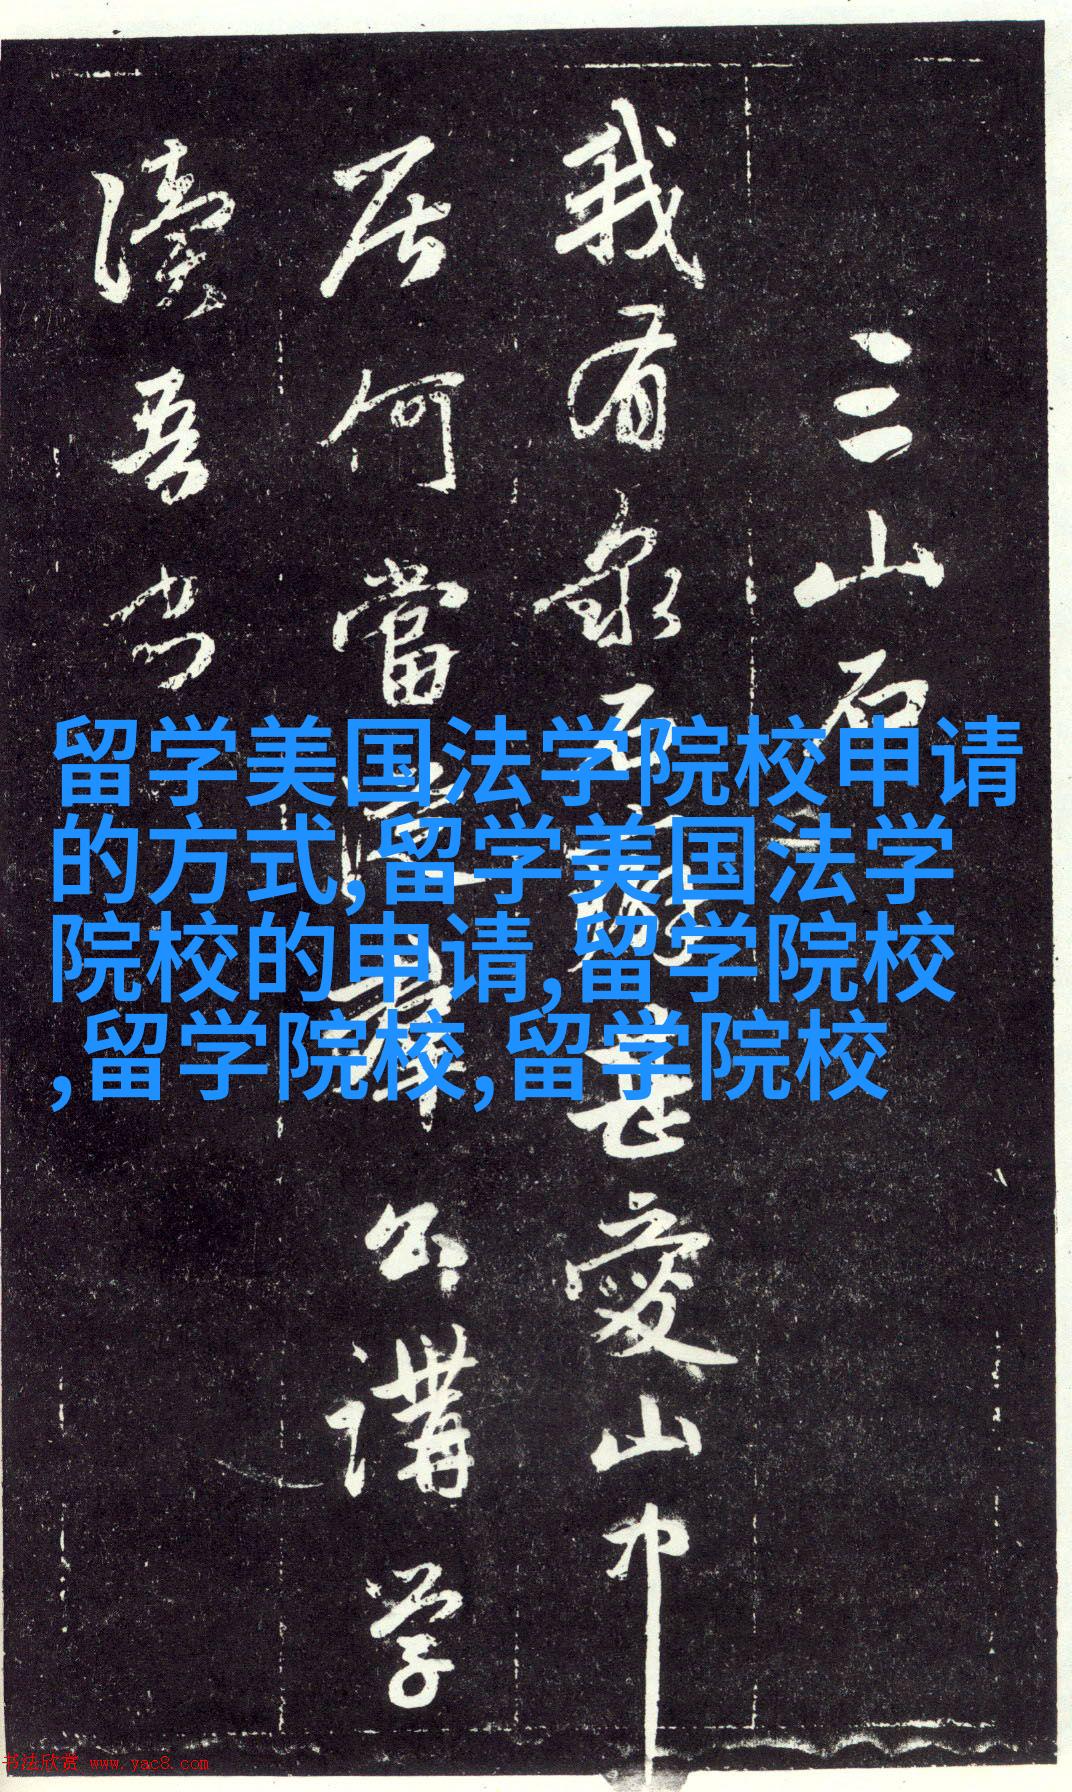 三山石
我有泉石甚愛山中
居何當羣公講学
讀吾书
留学美国法学院校申请
的方式,留学美国法学
院校的申请,留学院校
,留学院校,留学院校
书法欣赏 www.yac8.com